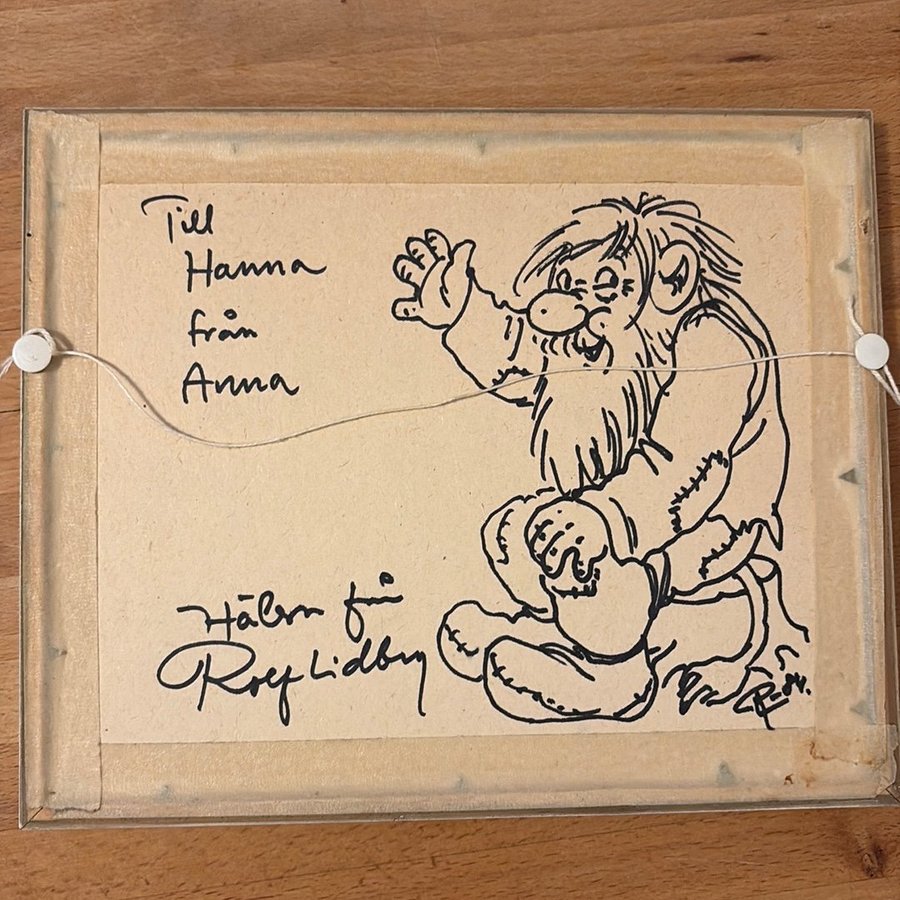 Till
Hanna
från
Anna
Hälsn från
Rolf Lidberg
RL-84.